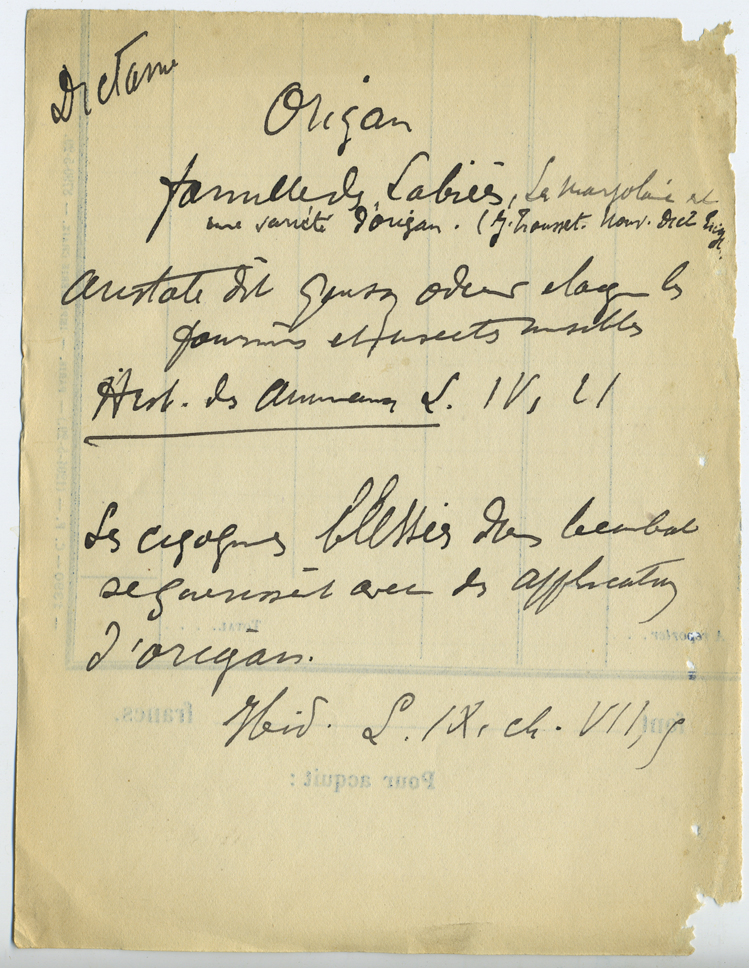 Dictame
Origan
famille des Labiées, La marjolaine est
une variété d'origan. (J. Trousset. Nouv. Dict
Aristote dit que son odeur éloigne les
fourmis et insectes nuisibles
Hist. des Animaux L. IV, 21
Les cigognes blessées dans le combat
se guérissent avec des applications
d'origan.
Ibid. L. IX. ch. VII, 5
A reporter.
TOTAL
font francs.
Pour acquit :